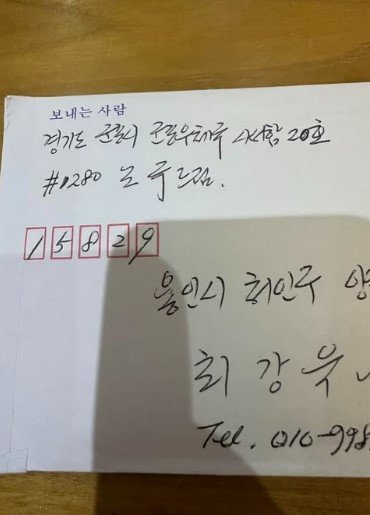 보내는 사람
경기도 군포시 군포우체국 사서함 20호
#1280 노 드림.
15829
용인시 처인구 양
최강욱
Tel. 010-998